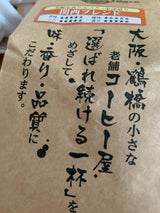 関西ブレンド
大阪・鶴橋の小さな
老舗コーヒー屋。
「選ばれ続ける一杯」を
めざして、
味・香り・品質に
こだわります。